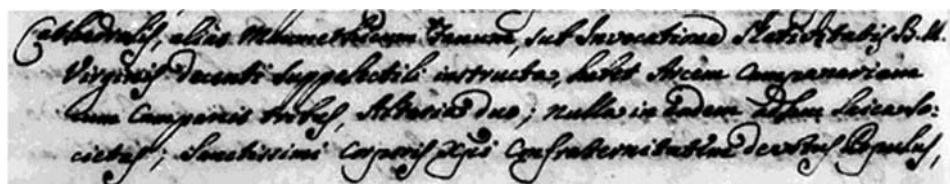 Cathedralis, alias Maumethicum Fanum, sub Invocatione Nativitatis B. M.
Virginis decenti suppellectili instructa, habet Arcem Campanariam
cum Campanis tribus, Altaria duo; nulla in eadem laica so:
cietas; Sanctissimi Corporis Xpi Confraternitatem devotus Populus,